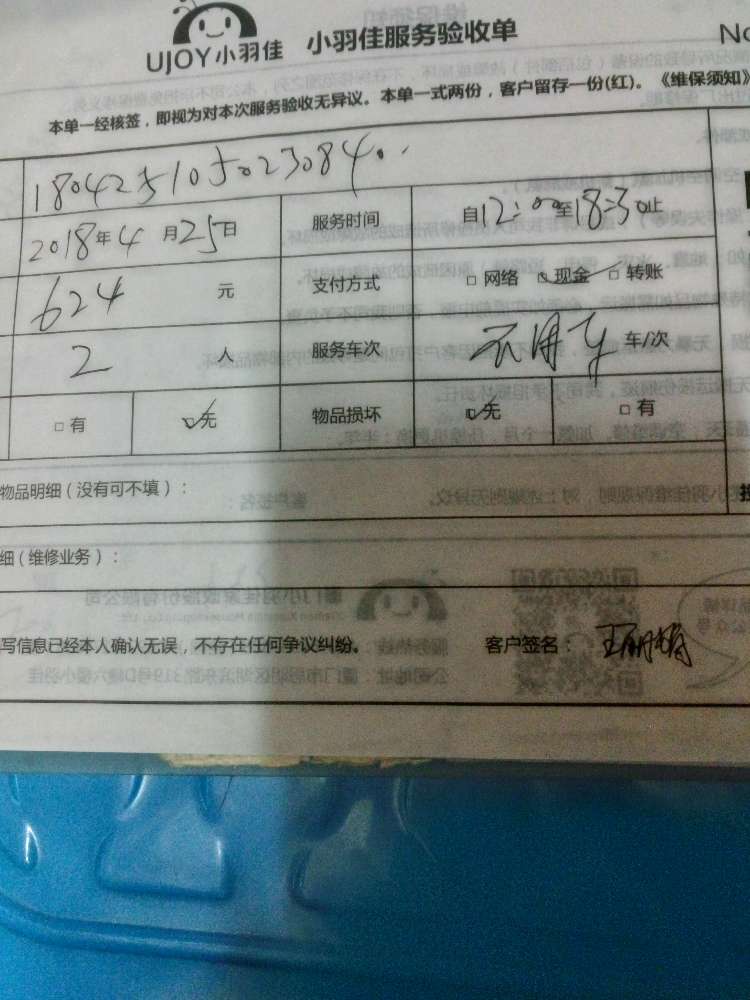 UJOY小羽佳 小羽佳服务验收单 No
本单一经核签，即视为对本次服务验收无异议。本单一式两份，客户留存一份(红)。《维保须知》
180425105023084
2018年4月25日 服务时间 自12:00至18:30止
624 元 支付方式 □ 网络 □ 现金 □ 转账
2 人 服务车次 车/次
□ 有 □ 无 物品损坏 □ 无 □ 有
物品明细（没有可不填）：
细（维修业务）：
写信息已经本人确认无误，不存在任何争议纠纷。 客户签名：